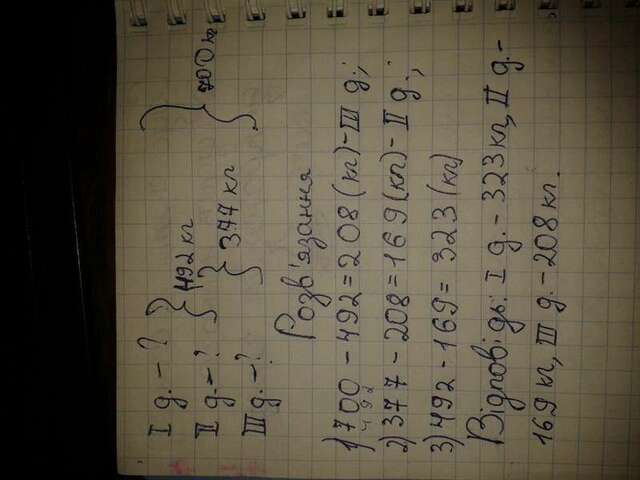 I д. - ? } 492 кг } 700 кг
II д. - ? } 377 кг
III д. - ?
Розв'язання
1) 700 - 492 = 208 (кг) - III д.;
492
2) 377 - 208 = 169 (кг) - II д.;
3) 492 - 169 = 323 (кг)
Відповідь: I д. - 323 кг, II д. -
169 кг, III д. - 208 кг.